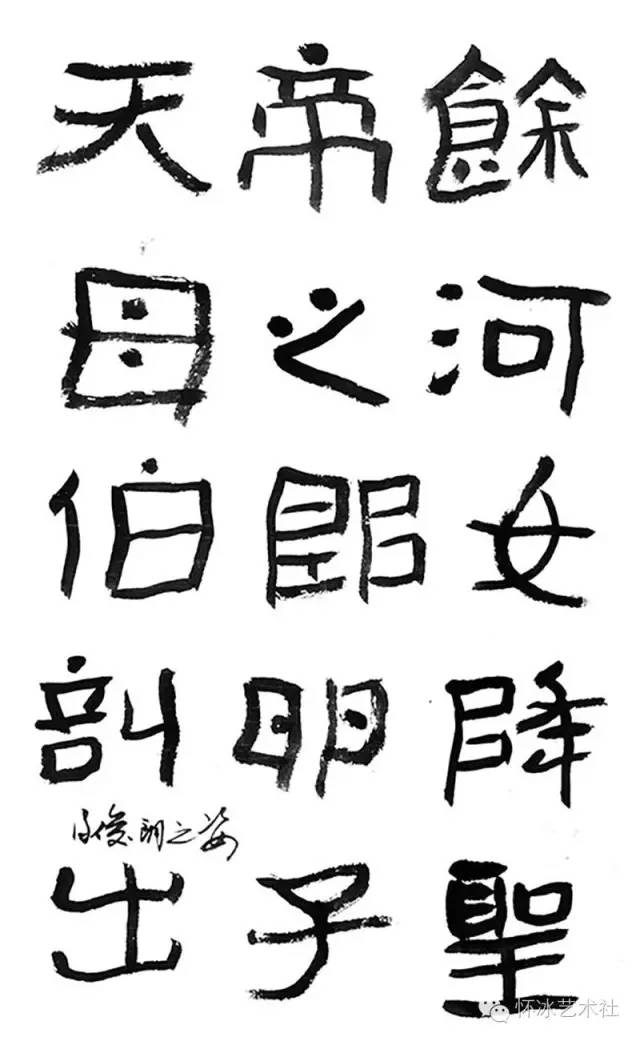 天帝餘
母之河
伯郎女
剖卵降
俊朗之姿
出子聖
怀冰艺术社